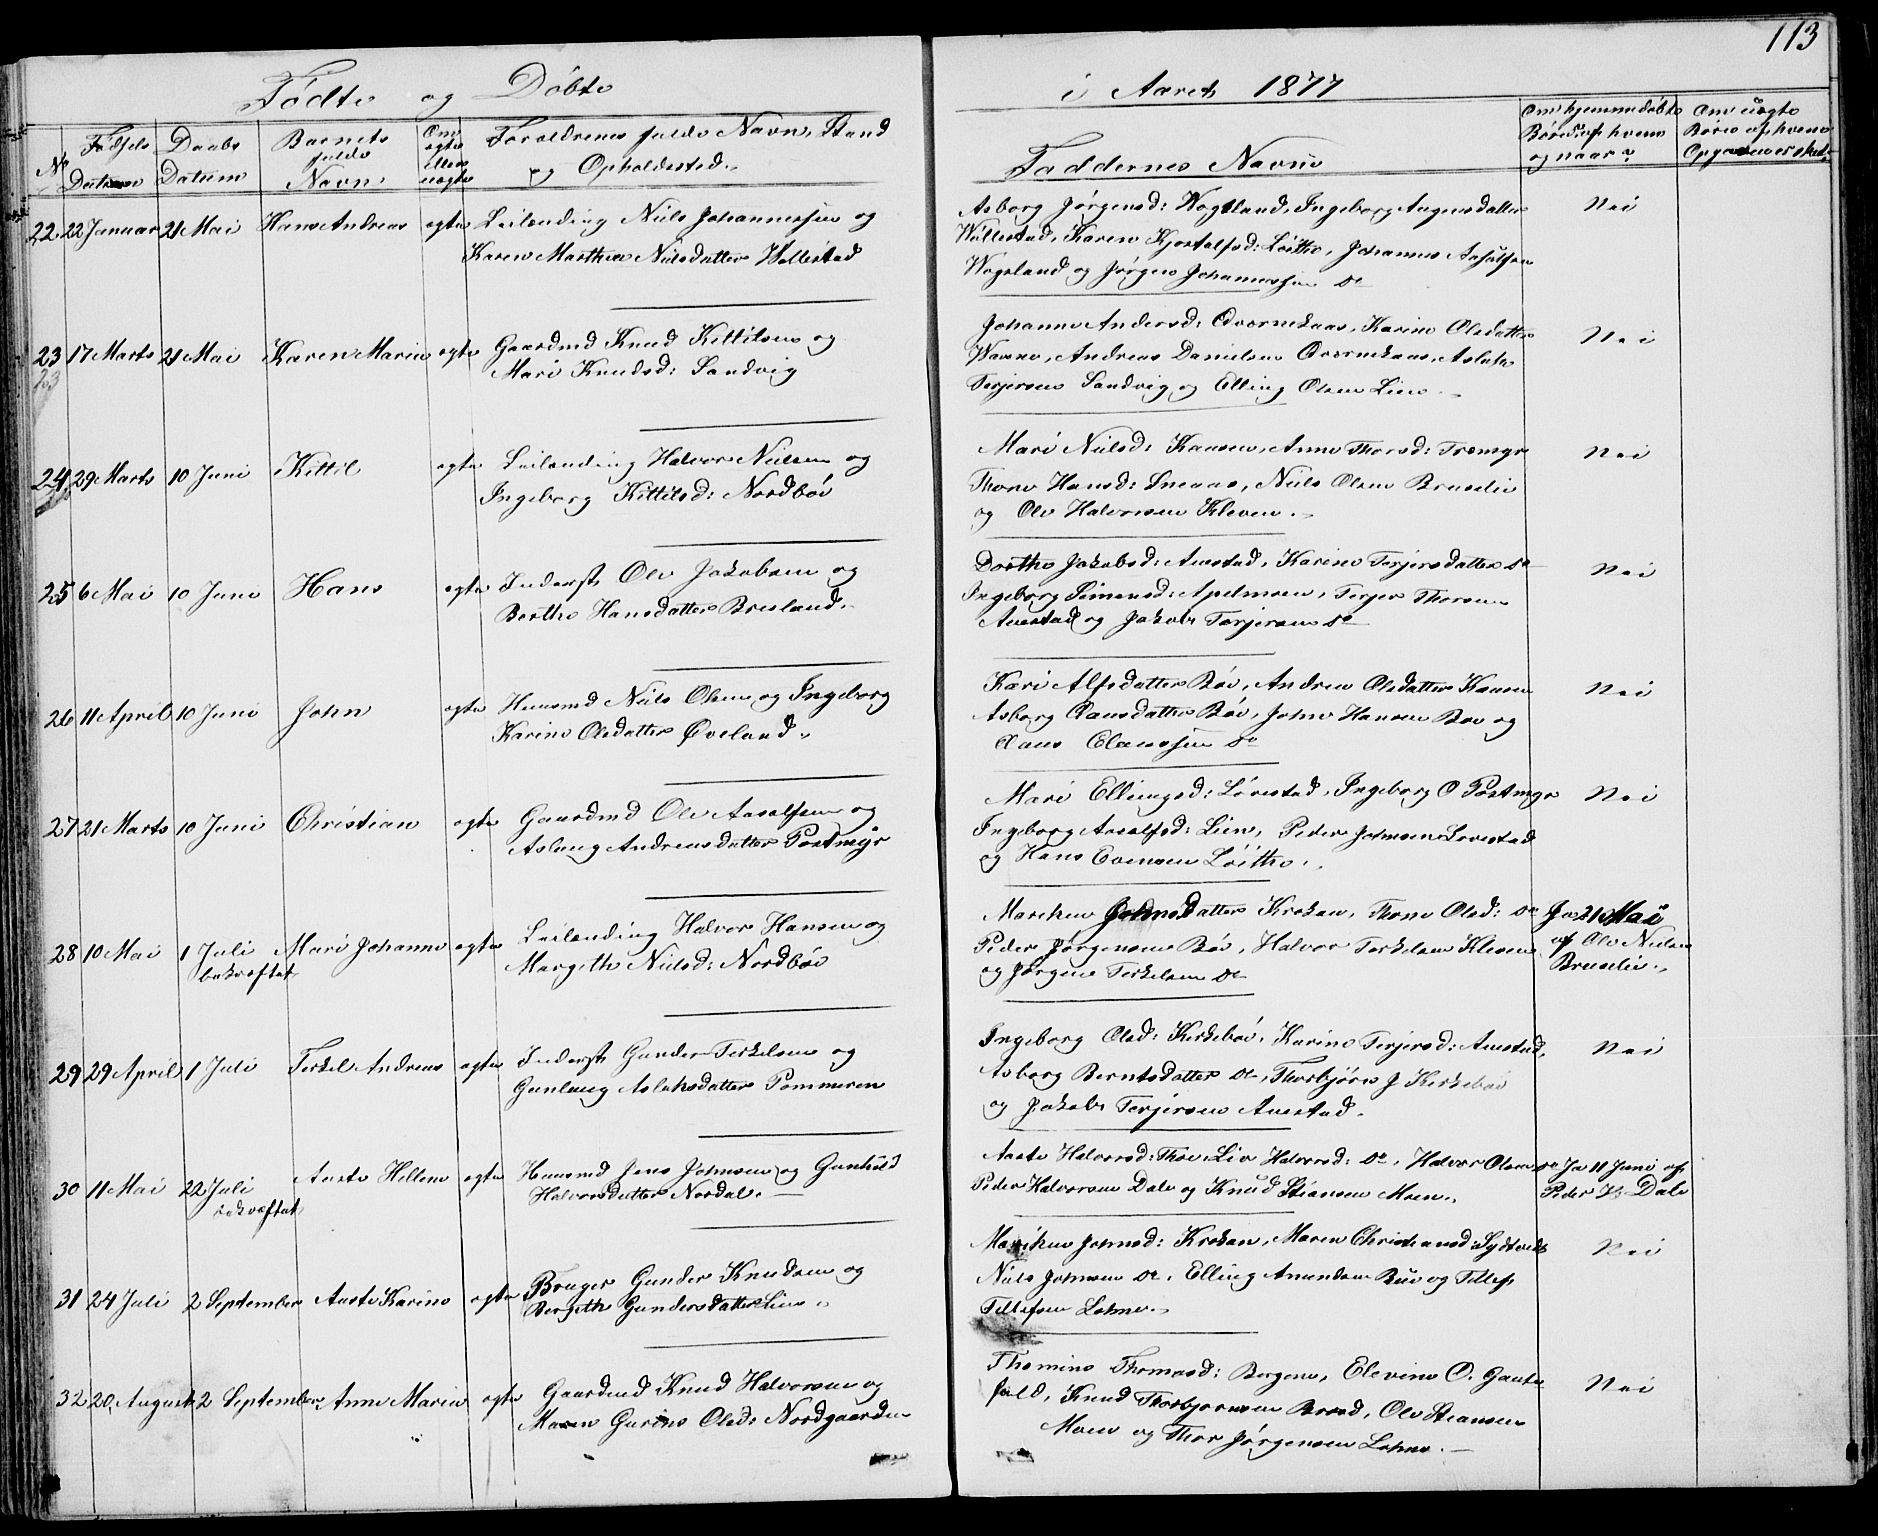 113
Födte og Döbte
i Aaret 1877
No
Fødsels Datum
Daabs Datum
Barnets fulde Navn.
Om ægte eller uægte
Forældrenes fulde Navn, Stand
og Opholdssted.
Faddernes Navne
Om hjemmedøbte
Børn, af hvem
og naar?
Om uægte
Børn af hvem
22 22 Januar 21 Mai Hans Andreas ægte Leilænding Niils Johannessen og
Karen Marthea Nielsdatter Wallestad
Asborg Jørgensd: Wogsland, Ingeborg Aagensdatter
Wallestad, Karen Kjostolfsd: Löithe, Johannes
Wogsland og Jørgen Johannessen do
Nei
23 17 Marts 21 Mai Karen Marie ægte Gaardmd Knud Kittilsen og
Mari Knudsd: Sandvig
Johanne Andersd: Qværnekaas, Karine Olsdatter
Andreas Danielsen Qværnekaas, Aslak
Terjersen Sandvig og Elling Olsen Lien.
Nei
24 29 Marts 10 Juni Kittil ægte Leilænding Halvor Nielsen og
Ingeborg Kittilsd: Nordböe
Mari Nielsd: Kaasen, Anne Thorsd: Tromyr
Thone Hansd: Sneaas, Niils Olsen Bruselie
og Ole Halvorsen Kleven.
Nei
25 6 Mai 10 Juni Hans ægte Inderst Ole Jakobsen og
Berthe Hansdatter Bresland.
Dorthe Jakobsd: Auestad, Karine Terjersdatter do
Ingeborg Simensd: Apelmoen, Terjer Thorsen
Auestad og Jakob Terjersen do
Nei
26 11 April 10 Juni John ægte Huusmd Niils Olsen og Ingeborg
Karine Olsdatter Øveland.
Kari Alfsdatter Böe, Andrea Olsdatter Kaasen
Asborg Clausdatter Böe, John Hansen Boe og
Claus Claussen do
Nei
27 21 Marts 10 Juni Christian ægte Gaardmd Ole Aasolfsen og
Aslaug Andreasdatter Postmyr
Mari Ellingsd: Lövestad, Ingeborg O Postmyr
Ingeborg Aasolfsd: Lien, Peder Johnsen Lovestad
og Hans Evensen Löithe.
Nei
28 10 Mai 1 Juli bekræftet Mari Johanne ægte Leilænding Halvor Hansen og
Margethe Nielsd: Nordböe
Mariken Johnsdatter Krokan, Thone Olsd: do
Peder Jørgensen Böe, Halvor Terkelsen Kleven
og Jørgen Terkelsen do
Ja 21 Mai
af Ole Nielsen
Bruselie.
29 29 April 1 Juli Terkel Andreas ægte Inderst Gunder Terkelsen og
Gunlaug Aslaksdatter Pommeren
Ingeborg Olsd: Kirkeböe, Karine Terjersd: Auestad,
Asborg Berntsdatter do, Thorbjörn J Kirkeböe
og Jakob Terjersen Auestad.
Nei
30 11 Mai 22 Juli bekræftet Aaste Hellene ægte Huusmd Jens Johnsen og Gunhild
Halvorsdatter Nordal.
Aaste Halvorsd: Liv Halvorsd: do, Halvor Olsen do
Peder Halvorsen Dale og Knud Stiansen Moen.
Ja 11 Juni af
Peder H. Dale
31 24 Juli 2 September Aaste Karine ægte Bruger Gunder Knudsen og
Bergithe Gundersdatter Lien.
Mariken Johnsd: Krokan, Maren Christiansd: Sydtvedt
Niils Johnsen do, Elling Amundsen Bue og Tellef
Tellefsen Lohne.
Nei
32 20 August 2 September Anne Marie ægte Gaardmd Knud Halvorsen og
Maren Gurine Olsd: Nordgaarden
Thomine Thomasd: Bergene, Elevine O. Gaute-
fald, Knud Thorbjornsen Ole Stiansen
Moen og Thor Jørgensen Lohne.
Nei